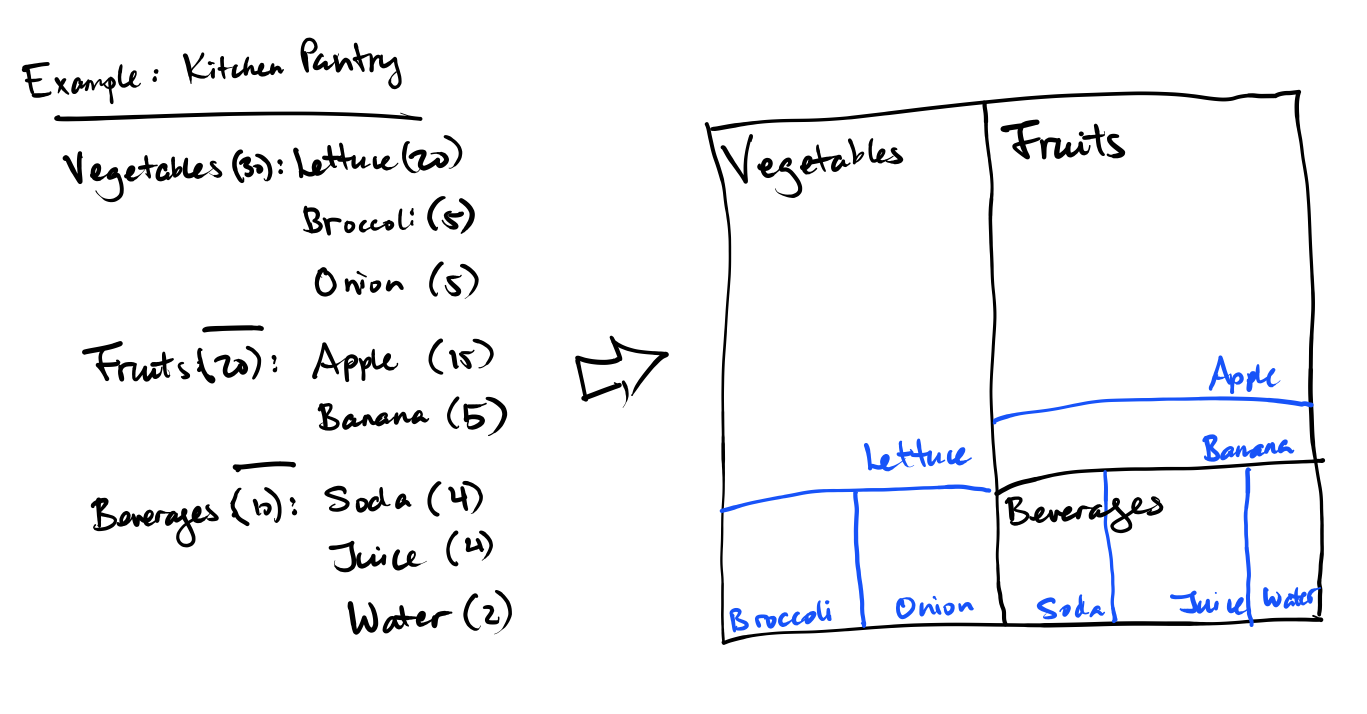 Example: Kitchen Pantry
Vegetables (30): Lettuce (20)
Broccoli (5)
Onion (5)
Fruits (20): Apple (15)
Banana (5)
Beverages (10): Soda (4)
Juice (4)
Water (2)
Vegetables
Fruits
Apple
Lettuce
Banana
Beverages
Broccoli
Onion
Soda
Juice
Water